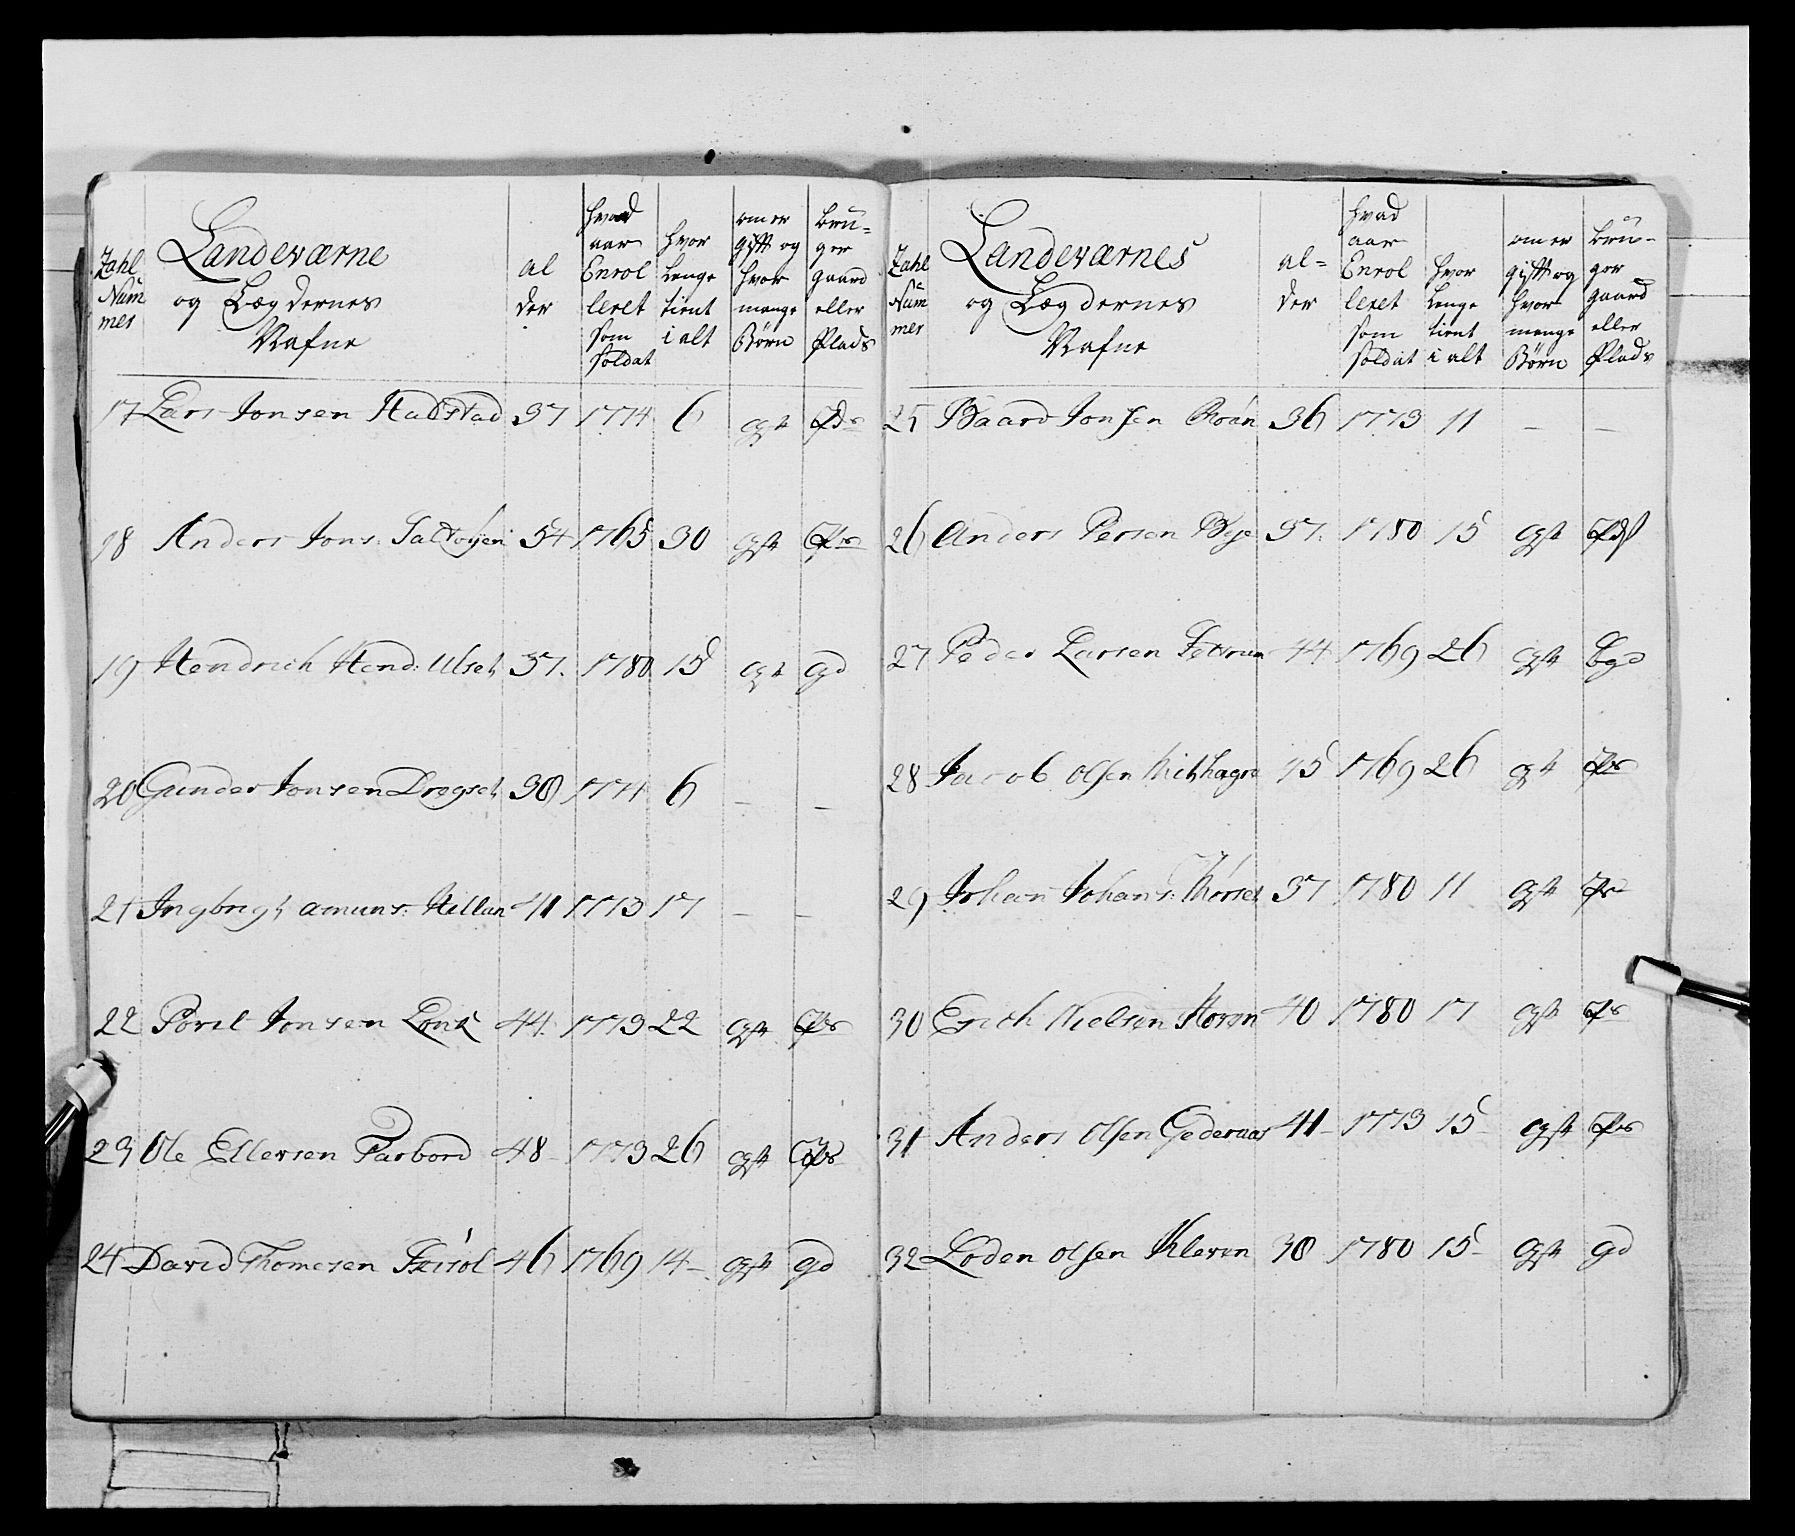 Zahl Num mer
Landeværne og Lægdernes Nafne
al der
hvad aar Enrol leret som Soldat
hvor lenge tient i alt
om er gift og hvor mange Børn
bru- ger gaard eller Plads
17 Lars Jonsen Halstad 37 1774 6 gt Pds
18 Anders Jons: 54 1765 30 gft Ps
19 Hendrich Hend: Ulset 37. 1780 15 gt gd
20 Gunder Jonsen Dregset 38 1774 6 - -
21 Ingbrigt amuns: Hellan 41 1773 17 - -
22 Povel Jonsen 44. 1773 22 gft Ps
23 Ole Ellevsen Farbord 48 - 1773 26 gft Ps
24 David Thomesen 46 1769 14 - gft gd
Zahl Num mer
Landeværnes og Lægdernes Nafne
al- der
hvad aar Enrol leret som Soldat
hvor lenge tient i alt
om er gift og hvor mange Børn
bru- ger gaard eller Plads
25 Baard Jonsen 36 1773 11 - -
26 Anders Persen Bye 37. 1780 15 gft Pds
27 Peder Larsen 44 1769 26 gft bgd
28 Jacob olsen 45 1769 26 gt Ps
29 Johan Johans: 37 1780 11 gft Ps
30 Erich Nielsen 40 1780 17 gft Ps
31 Anders olsen Gederaas 41 - 1773 15 - gft Ps
32 Loden olsen Kleven 38 1780 15 - gft gd